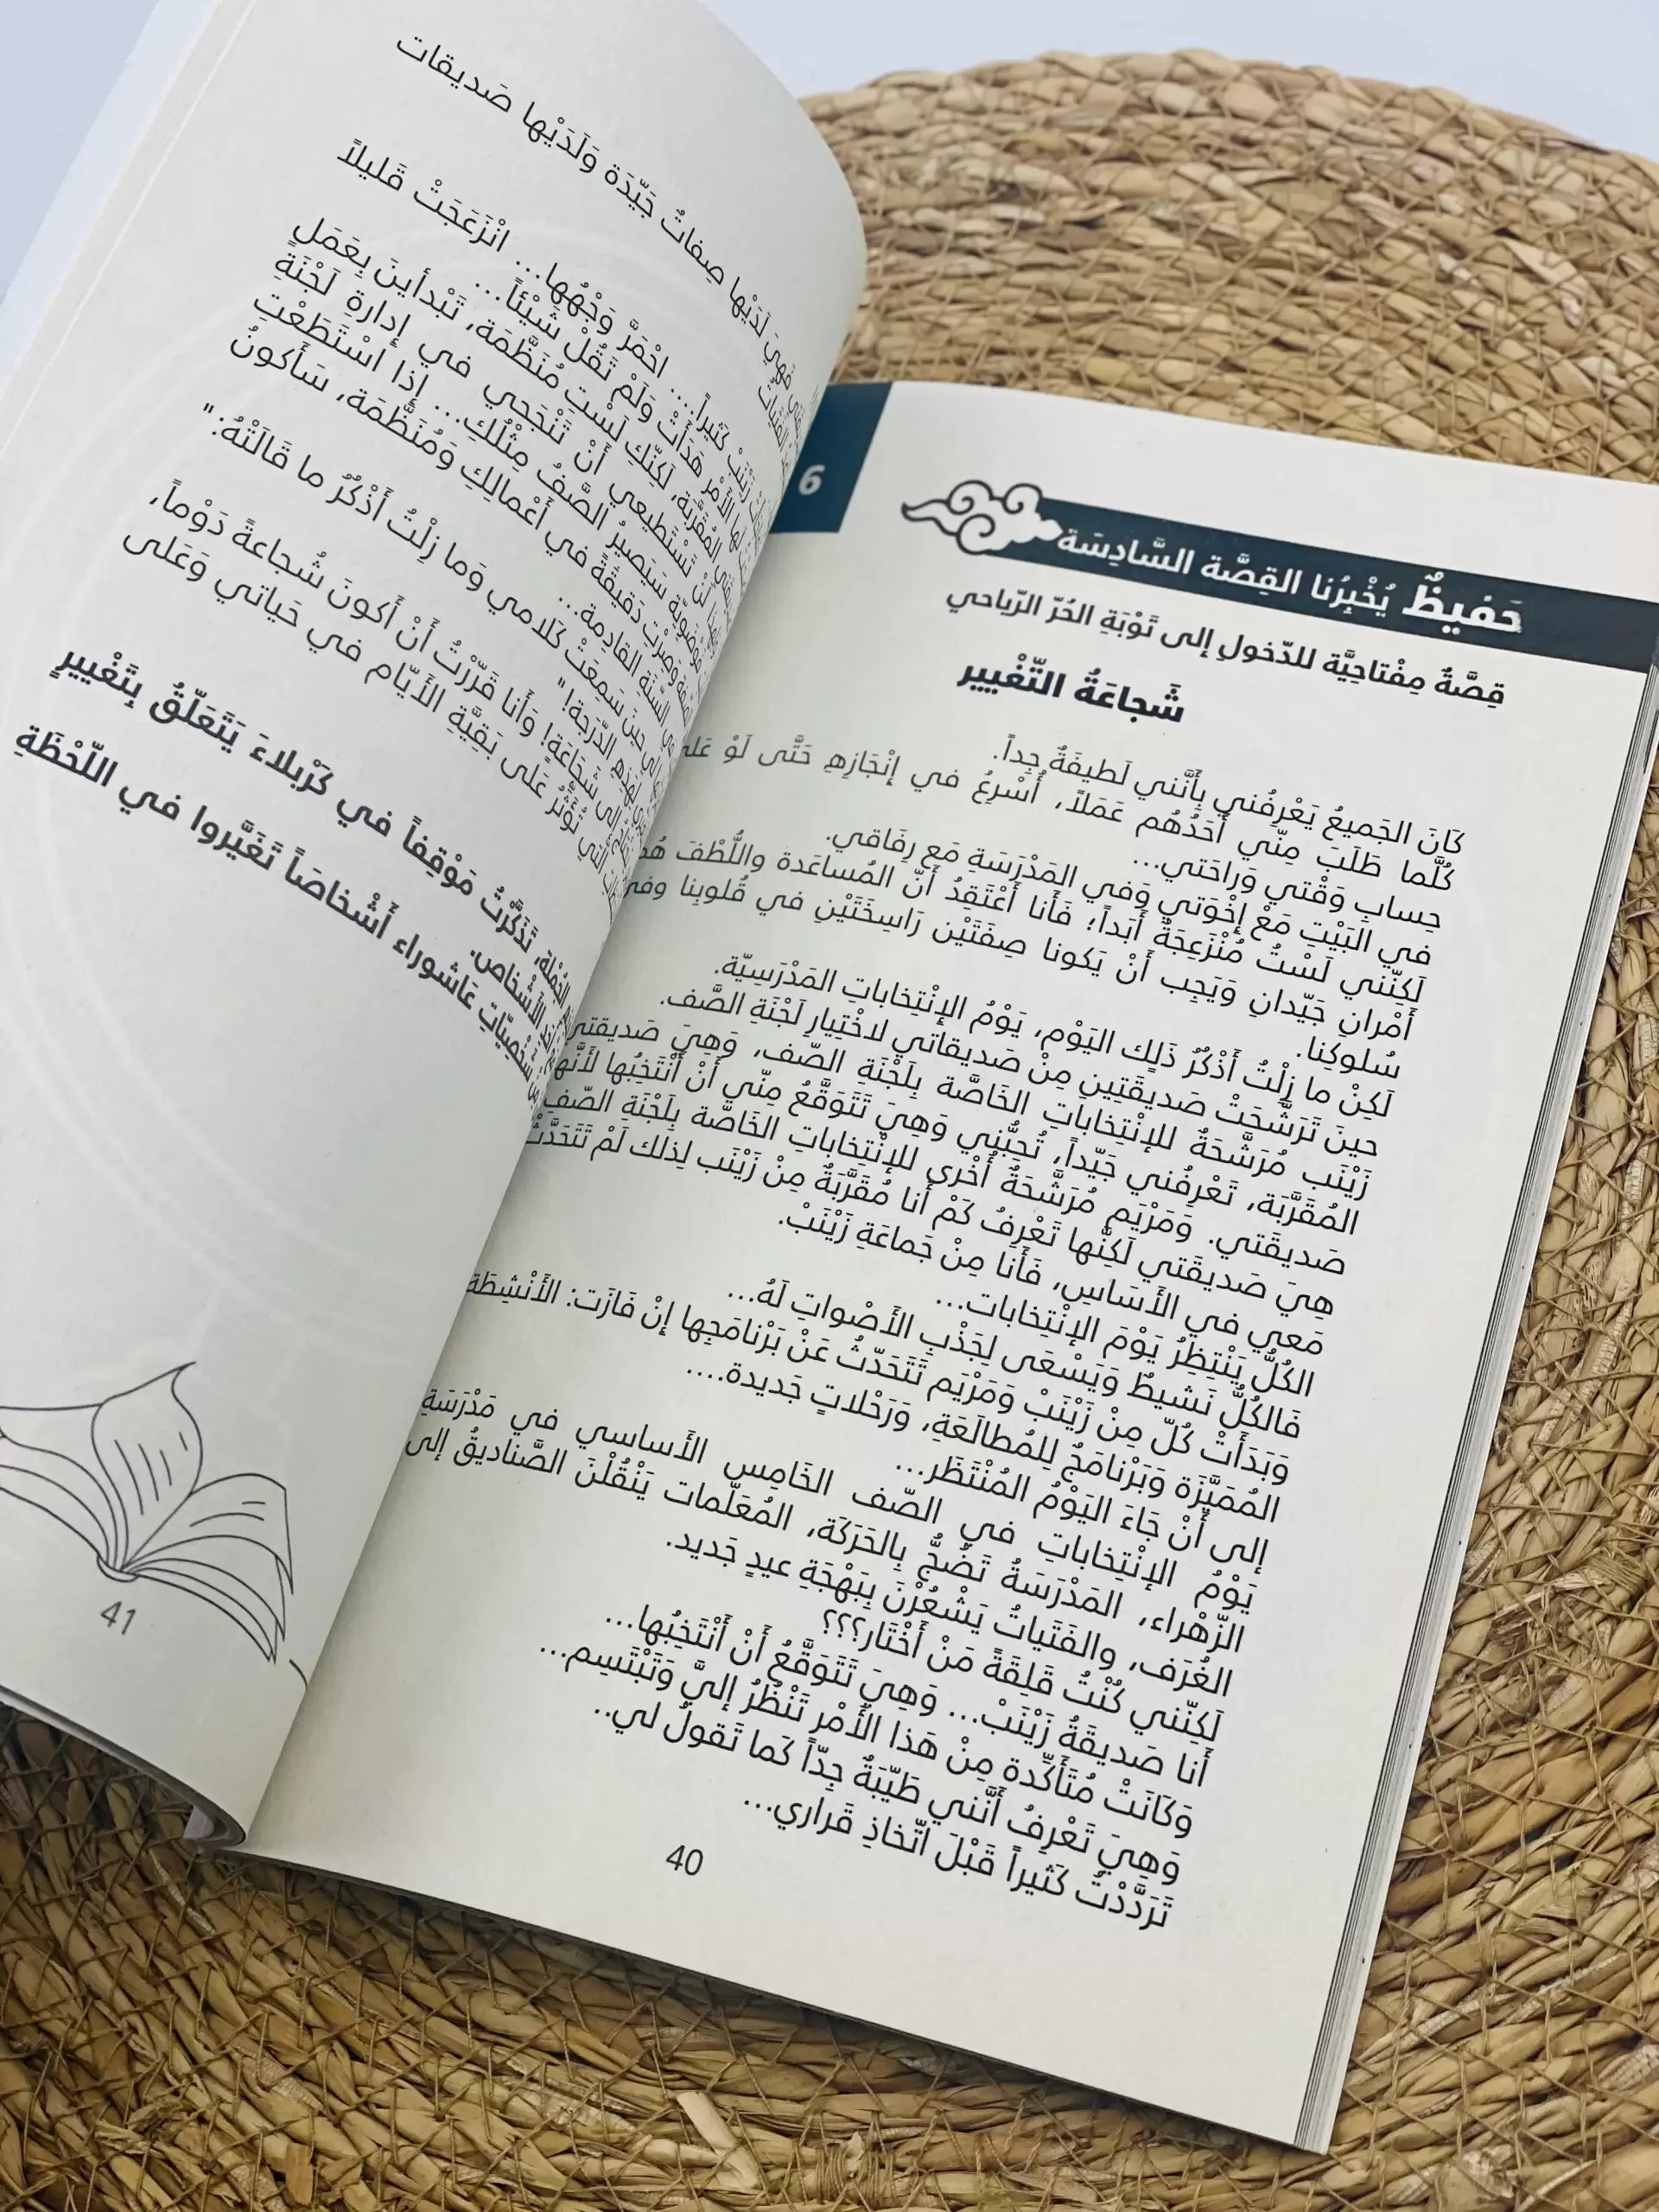 6
حَفيظٌ يُخْبِرُنا القِصَّة السَّادِسَة
قِصَّةٌ مِفْتاحِيَّة للدّخولِ إلى تَوْبَةِ الحُرّ الرّياحي
شَجاعَةُ التّغْيير
كَانَ الجَميعُ يَعْرِفُني بِأَنَّني لَطيفَةٌ جِداً.
كُلَّما طَلَبَ مِنّي أَحَدُهُم عَمَلاً، أُسْرِعُ في إنْجَازِهِ حَتَّى لَوْ عَلى
حِسابِ وَقْتي وَراحَتي...
في البَيْتِ مَعْ إخْوَتي وَفي المَدْرَسَةِ مَع رِفَاقي.
لَكِنّني لَسْتُ مُنْزَعِجَةٌ أَبَداً؛ فَأَنا أَعْتَقِدُ أَنّ المُساعَدة واللُّطْفَ
أَمْرانِ جَيّدانِ وَيَجِب أَنْ يَكونا صِفَتَيْن رَاسِخَتَيْنِ في قُلوبِنا وفي
سُلوكِنا.
لَكِنْ ما زِلْتُ أَذْكُرُ ذَلِك اليَوْم، يَوْمُ الإنْتِخاباتِ المَدْرَسِيّة.
حينَ تَرَشَّحَتْ صَديقَتِين مِنْ صَديقاتي لاخْتِيارِ لَجْنَةِ الصَّف.
زَيْنَب مُرَشَّحَةٌ للإنْتِخاباتِ الخَاصَّة بِلَجْنَةِ الصّف، وَهِيَ صَديقتي
المُقَرَّبَة، تَعْرِفُني جَيّداً، تُحِبُّني وَهِيَ تَتَوَقَّعُ مِنّي أَنْ أَنْتَخِبُها لأَنَّها
صَديقَتي. وَمَرْيَم مُرَشَّحَةٌ أُخْرى للإنْتِخاباتِ الخَاصَّة بِلَجْنَةِ الصّفِ
هِيَ صَديقَتي لَكِنَّها تَعْرِفُ كَمْ أَنا مُقَرَّبَةٌ مِنْ زَيْنَب لِذلك لَمْ تَتَحَدَّثْ
مَعي في الأَسَاسِ، فَأَنا مِنْ جَماعَةِ زَيْنَبْ.
الكُلُّ يَنْتِظِرُ يَوْمَ الإنْتِخابات...
فَالكُلُّ نَشيطٌ وَيَسْعَى لِجَذْبِ الأَصْواتِ لَهُ...
وَبَدَأَتْ كُلّ مِنْ زَيْنَبْ وَمَرْيَم تَتَحَدّثُ عَنْ بَرْنامَجِها إنْ فَازَت: الأَنْشِطَة
المُمَيَّزَة وَبَرْنامَجٌ لِلمُطالَعَةِ، وَرَحْلاتٍ جَديدة....
إلى أَنْ جَاءَ اليَوْمُ المُنْتَظَر...
يَوْمُ الإنْتِخاباتِ في الصّف الخَامِس الأَساسي في مَدْرَسَةِ
الزّهْراء، المَدْرَسَةُ تَضُجُّ بِالحَرَكَة، المُعَلّمات يَنْقُلْنَ الصَّناديقُ إلى
الغُرَف، والفَتَياتُ يَشْعُرْنَ بِبَهْجَةِ عيدٍ جَديد.
لَكِنّني كُنْتُ قَلِقَةً مَنْ أَخْتَار؟؟؟
أَنا صَديقَةُ زَيْنَبْ... وَهِيَ تَتَوَقَّعُ أَنْ أَنْتَخِبُها...
وَكَانَتْ مُتَأَكِّدة مِنْ هَذا الأَمْرِ تَنْظُرُ إليَّ وَتَبْتَسِم...
وَهِيَ تَعْرِفُ أَنَّني طَيّبَةٌ جِدّاً كَما تَقولُ لي..
تَرَدَّدْتُ كَثيراً قَبْلَ اتّخاذِ قَراري...
40
فَهِيَ لَدَيْها صِفاتٌ جَيّدَة وَلَدَيْها صَديقات
زَيْنَبْ كَثيراً.... احْمَرَّ وَجْهُها... انْزَعَجَتْ قَليلاً
الأَمْر هَدَأَتْ وَلَمْ تَقُلْ شَيْئاً...
المُقَرَّبَة، لَكِنّكِ لَسْتِ مُنَظَّمَة، تَبْدأينَ بِعَمَل
لَنْ تَسْتَطيعي أَنْ تَنْجَحِي في إدارةِ لَجْنَةِ
سَيَصيرُ الصَّفُ مِثْلُكِ... إذا اسْتَطَعْتِ
دَقيقَةً في أَعْمالِكِ وَمُنَظَّمَة، سَأَكونُ
السّنَة القادِمة...
حينَ سَمِعَتْ كَلامي وَما زِلْتُ أَذْكُرُ ما قَالَتْهُ:"
لِهَذِهِ الدّرَجة!"
إلى شَجَاعَة! وَأَنا قَرّرْتُ أَنْ أَكونَ شُجاعةً دَوْماً،
الّتي تُؤَثّرُ عَلى بَقِيَّةِ الأَيّام في حَياتي وَعَلى
الجُمْلة، تَذَكَّرْتُ مَوْقِفاً في كَرْبلاءَ يَتَعَلّقُ بِتَغْييرِ
أَحَدِ الأَشْخاص.
شَخْصِيّاتِ عَاشوراء أَشْخاصَاً تَغَيَّروا في اللّحْظَةِ
41